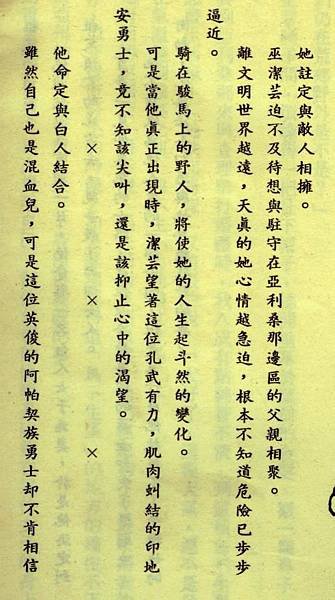 她註定與敵人相擁。
巫潔芸迫不及待想與駐守在亞利桑那邊區的父親相聚。
離文明世界越遠，天真的她心情越急迫，根本不知道危險已步步
逼近。
騎在駿馬上的野人，將使她的人生起斗然的變化。
可是當他真正出現時，潔芸望著這位孔武有力，肌肉虯結的印地
安勇士，竟不知該尖叫，還是該抑止心中的渴望。
× × ×
他命定與白人結合。
雖然自己也是混血兒，可是這位英俊的阿帕契族勇士却不肯相信